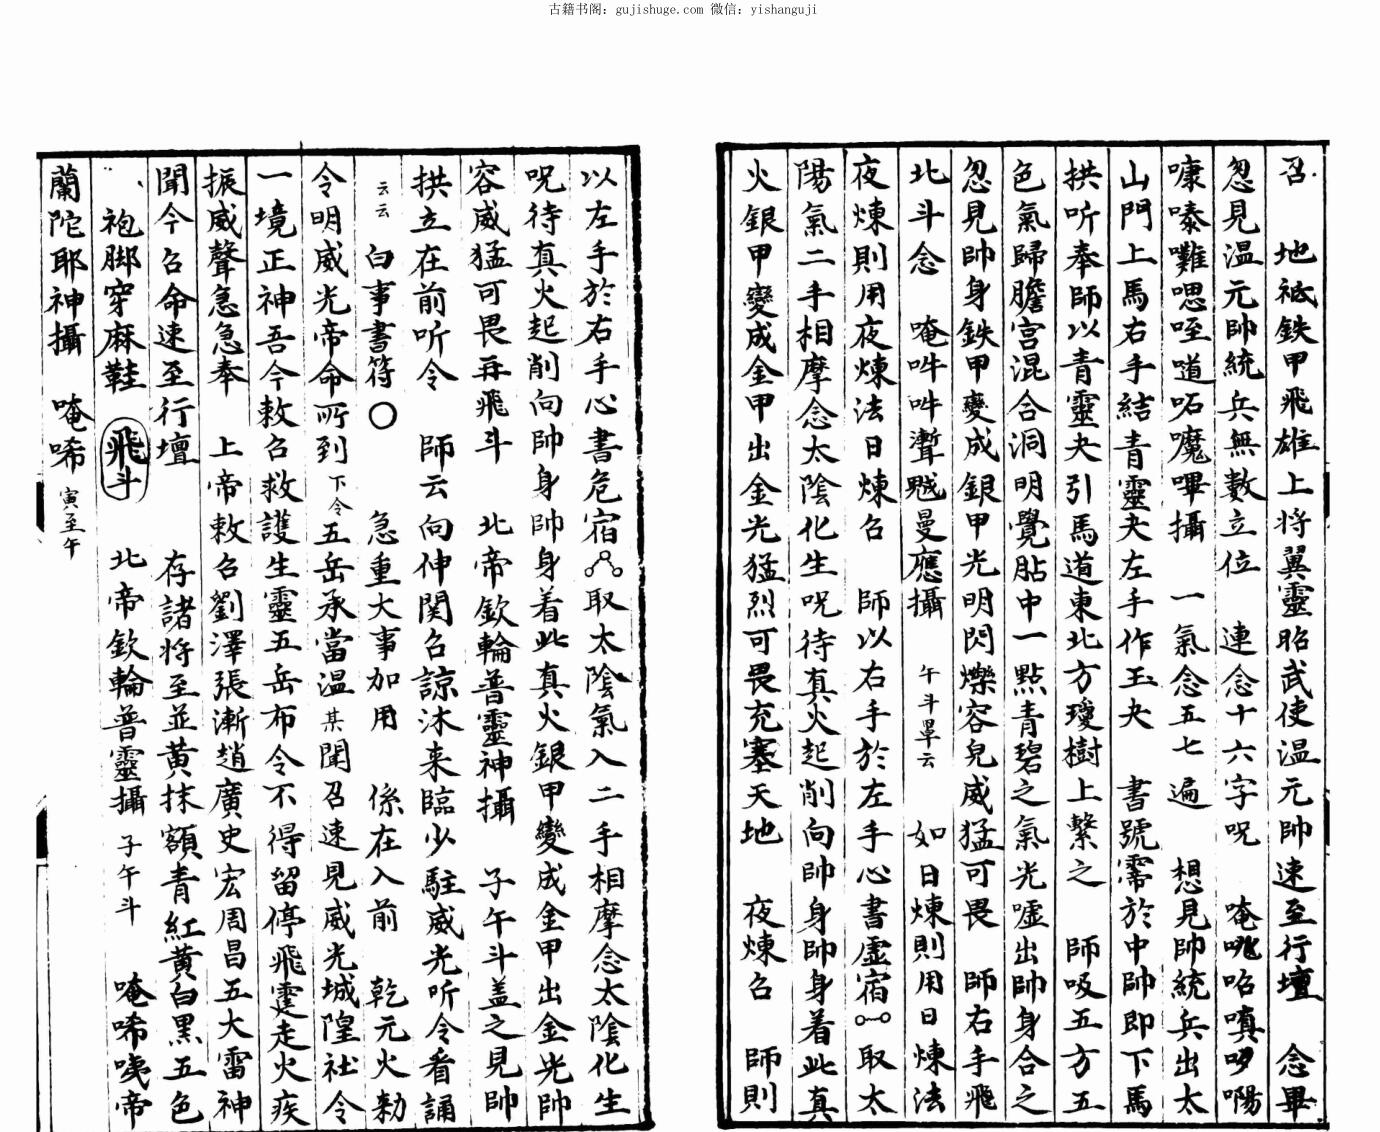 古籍书阁：gujishuge.com 微信：yishanguji
召 地祇鉄甲飛雄上将翼靈昭武使温元帥速至行壇 念畢
忽見温元帥統兵無數立位 連念十六字呪 唵吪
嗹 山門上馬右手結青靈夬左手作玉夬 書號霛於中帥即下馬
拱听奉師以青靈夬引馬道東北方瓊樹上繫之 師吸五方五
色氣歸膽宫混合洞明覺胋中一點青碧之氣光嘘出帥身合之
忽見帥身鉄甲變成銀甲光明閃爍容皃威猛可畏 師右手飛
北斗念 唵吽吽 曼應攝 午斗罩云 如日煉則用日煉法
夜煉則用夜煉法日煉召 師以右手於左手心書虚宿 取太
陽氣二手相摩念太陰化生呪待真火起削向帥身帥身着此真
火銀甲變成金甲出金光猛烈可畏充塞天地 夜煉召 師則
以左手於右手心書危宿 取太陰氣入二手相摩念太陰化生
呪待真火起削向帥身帥身着此真火銀甲變成金甲出金光帥
容威猛可畏再飛斗 北帝欽輪普靈神攝 子午斗盖之見帥
拱立在前听令 師云向伸関召諒沐来臨少駐威光听令看誦
云云 白事書符〇 急重大事加用 係在入前 乾元火勑
令明威光帝命所到下令五岳承當温某聞召速見威光城隍社令
一境正神吾今敕召救護生靈五岳布令不得留停飛霆走火疾
振威聲急急奉 上帝敕召劉澤張漸趙廣史宏周昌五大雷神
聞今召命速至行壇 存諸将至並黄抹額青紅黄白黒五色
袍脚穿麻鞋 飛斗 北帝欽輪普靈攝子午斗 唵唏咦帝
蘭陀耶神攝 唵唏寅至午